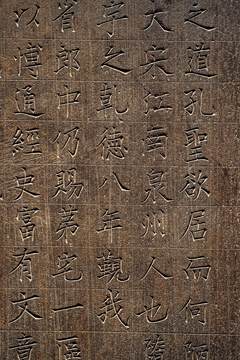 之道孔聖欲居而何陋
大宋江南泉州人也隨
字之乾德八年觀我
省郎中仍賜第宅一區
以博通經史富有文章